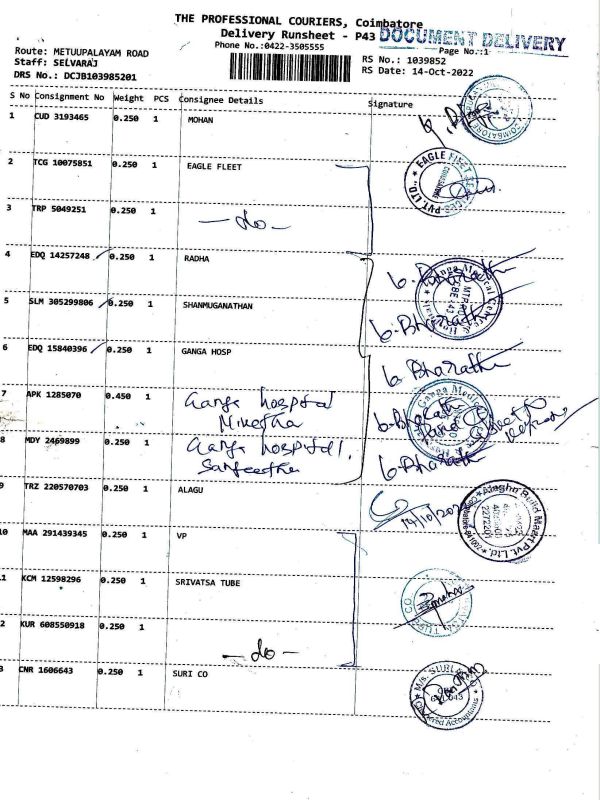 THE PROFESSIONAL COURIERS, Coimbatore
Delivery Runsheet - P43 DOCUMENT DELIVERY
Phone No.:0422-3505555 Page No.:1
Route: METUUPALAYAM ROAD
Staff: SELVARAJ RS No.: 1039852
DRS No.: DCJB103985201 RS Date: 14-Oct-2022
S No Consignment No Weight PCS Consignee Details Signature
1 CUD 3193465 0.250 1 MOHAN
2 TCG 10075851 0.250 1 EAGLE FLEET
3 TRP 5049251 0.250 1 -do-
4 EDQ 14257248 0.250 1 RADHA
5 SLM 305299806 0.250 1 SHANMUGANATHAN G.Bharath
6 EDQ 15840396 0.250 1 GANGA HOSP G.Bharath
7 APK 1285070 0.450 1 Ganga hospital
8 MDY 2469899 0.250 1 Ganga hospital,
Sangeetha G.Bharath
9 TRZ 220570703 0.250 1 ALAGU
10 MAA 291439345 0.250 1 VP
11 KCM 12598296 0.250 1 SRIVATSA TUBE
2 KUR 608550918 0.250 1 -do-
3 CNR 1606643 0.250 1 SURI CO